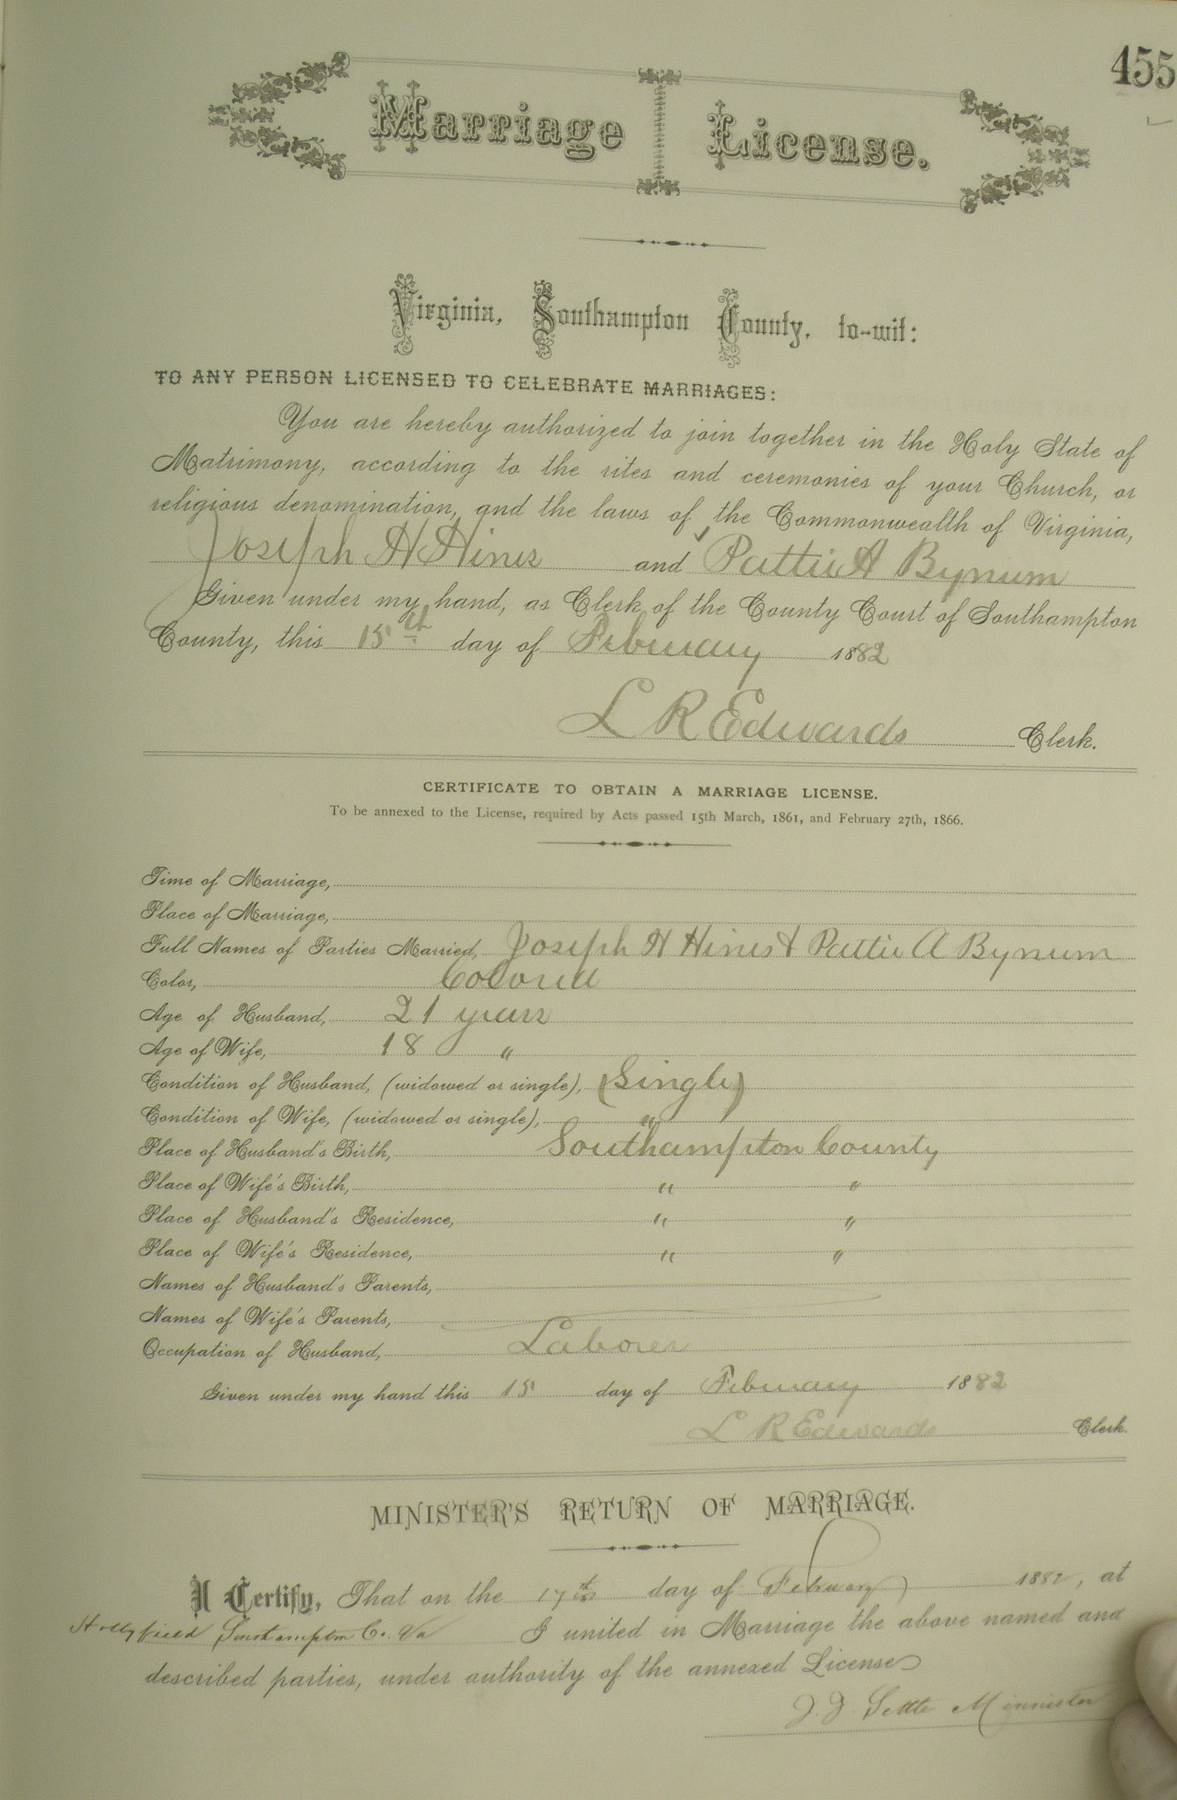 455
Marriage License.
Virginia, Southampton County, to-wit:
TO ANY PERSON LICENSED TO CELEBRATE MARRIAGES:
You are hereby authorized to join together in the Holy State of
Matrimony, according to the rites and ceremonies of your Church, or
religious denomination, and the laws of the Commonwealth of Virginia,
Joseph H Hines and Pattie A Bynum
Given under my hand, as Clerk of the County Court of Southampton
County, this 15th day of February 1882
L R Edwards Clerk.
CERTIFICATE TO OBTAIN A MARRIAGE LICENSE.
To be annexed to the License, required by Acts passed 15th March, 1861, and February 27th, 1866.
Time of Marriage,
Place of Marriage,
Full Names of Parties Married, Joseph H Hines & Pattie A Bynum
Color, Colored
Age of Husband, 21 years
Age of Wife, 18 "
Condition of Husband, (widowed or single), (Single)
Condition of Wife, (widowed or single), "
Place of Husband's Birth, Southampton County
Place of Wife's Birth, " "
Place of Husband's Residence, " "
Place of Wife's Residence, " "
Names of Husband's Parents,
Names of Wife's Parents,
Occupation of Husband, Laborer
Given under my hand this 15 day of February 1882
L R Edwards Clerk.
MINISTER'S RETURN OF MARRIAGE.
I Certify, That on the 17th day of February 1882, at
Hollyfield Southampton Co. Va I united in Marriage the above named and
described parties, under authority of the annexed License
J. J. Minnister